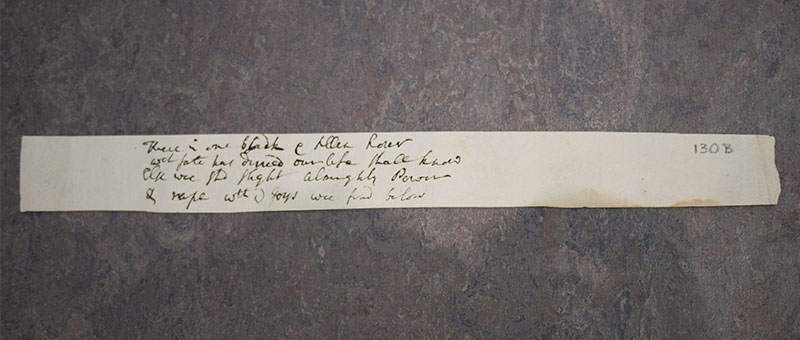 There is one black & sullen hower
wch fate has our life shall know
Else wee shd slight almighty Power
& rape wth Joys wee find below
130B